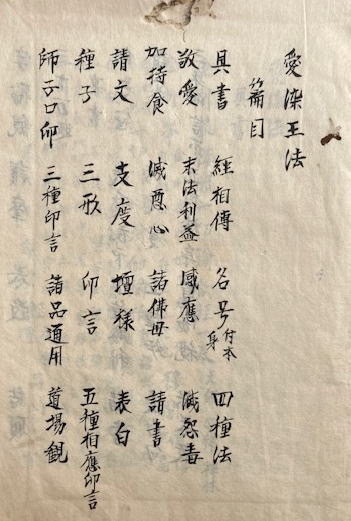 愛染王法
篇目
具書 經相傳 名号付本身 四種法
敬愛 末法利益 感應 滅怨毒
加持食 滅惡心 諸佛母 請書
請文 支度 壇樣 表白
種子 三形 印言 五種相應印言
師子口印 三種印言 諸品通用 道場観